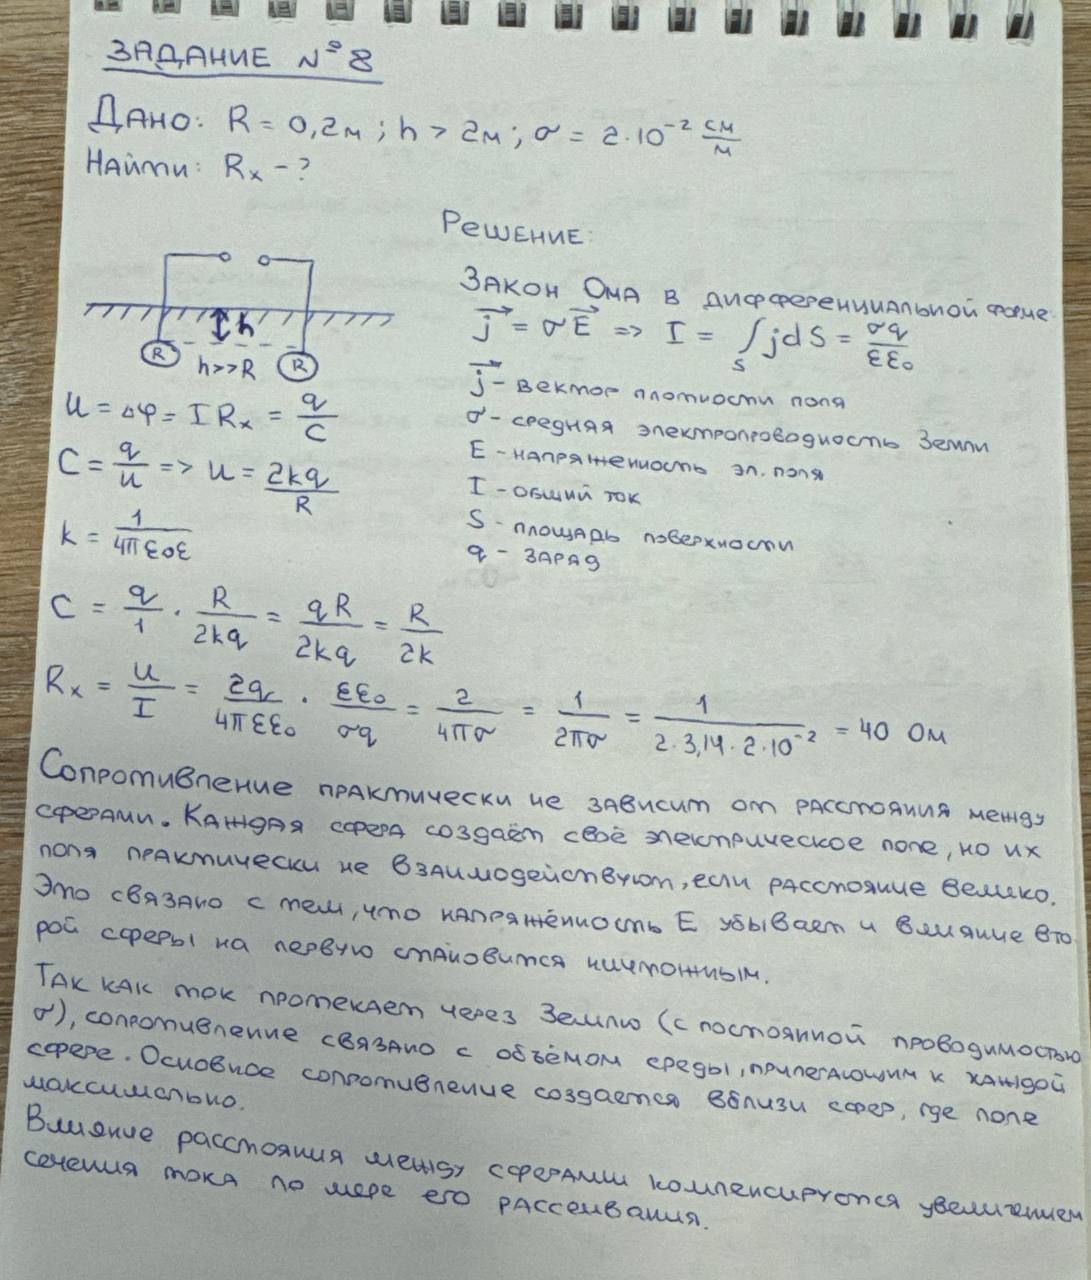 ЗАДАНИЕ №8
Дано: R = 0,2м; h > 2м; σ = 2·10⁻² См/м
Найти: Rₓ - ?
Решение:
R R
h
h>>R
Закон Ома в дифференциальной форме:
j⃗ = σE⃗ => I = ∫_S jdS = σq/εε₀
j⃗ - вектор плотности поля
σ - средняя электропроводность Земли
E - напряженность эл. поля
I - общий ток
S - площадь поверхности
q - заряд
U = Δφ = I Rₓ = q/C
C = q/U => U = 2kq/R
k = 1/4πε₀ε
C = q/1 · R/2kq = qR/2kq = R/2k
Rₓ = U/I = 2q/4πεε₀ · εε₀/σq = 2/4πσ = 1/2πσ = 1/2·3,14·2·10⁻² = 40 Ом
Сопротивление практически не зависит от расстояния между
сферами. Каждая сфера создаёт своё электрическое поле, но их
поля практически не взаимодействуют, если расстояние велико.
Это связано с тем, что напряжённость E убывает и влияние вто
рой сферы на первую становится ничтожным.
Так как ток протекает через Землю (с постоянной проводимостью
σ), сопротивление связано с объёмом среды, прилегающим к каждой
сфере. Основное сопротивление создается вблизи сфер, где поле
максимально.
Влияние расстояния между сферами компенсируется увеличением
сечения тока по мере его рассеивания.